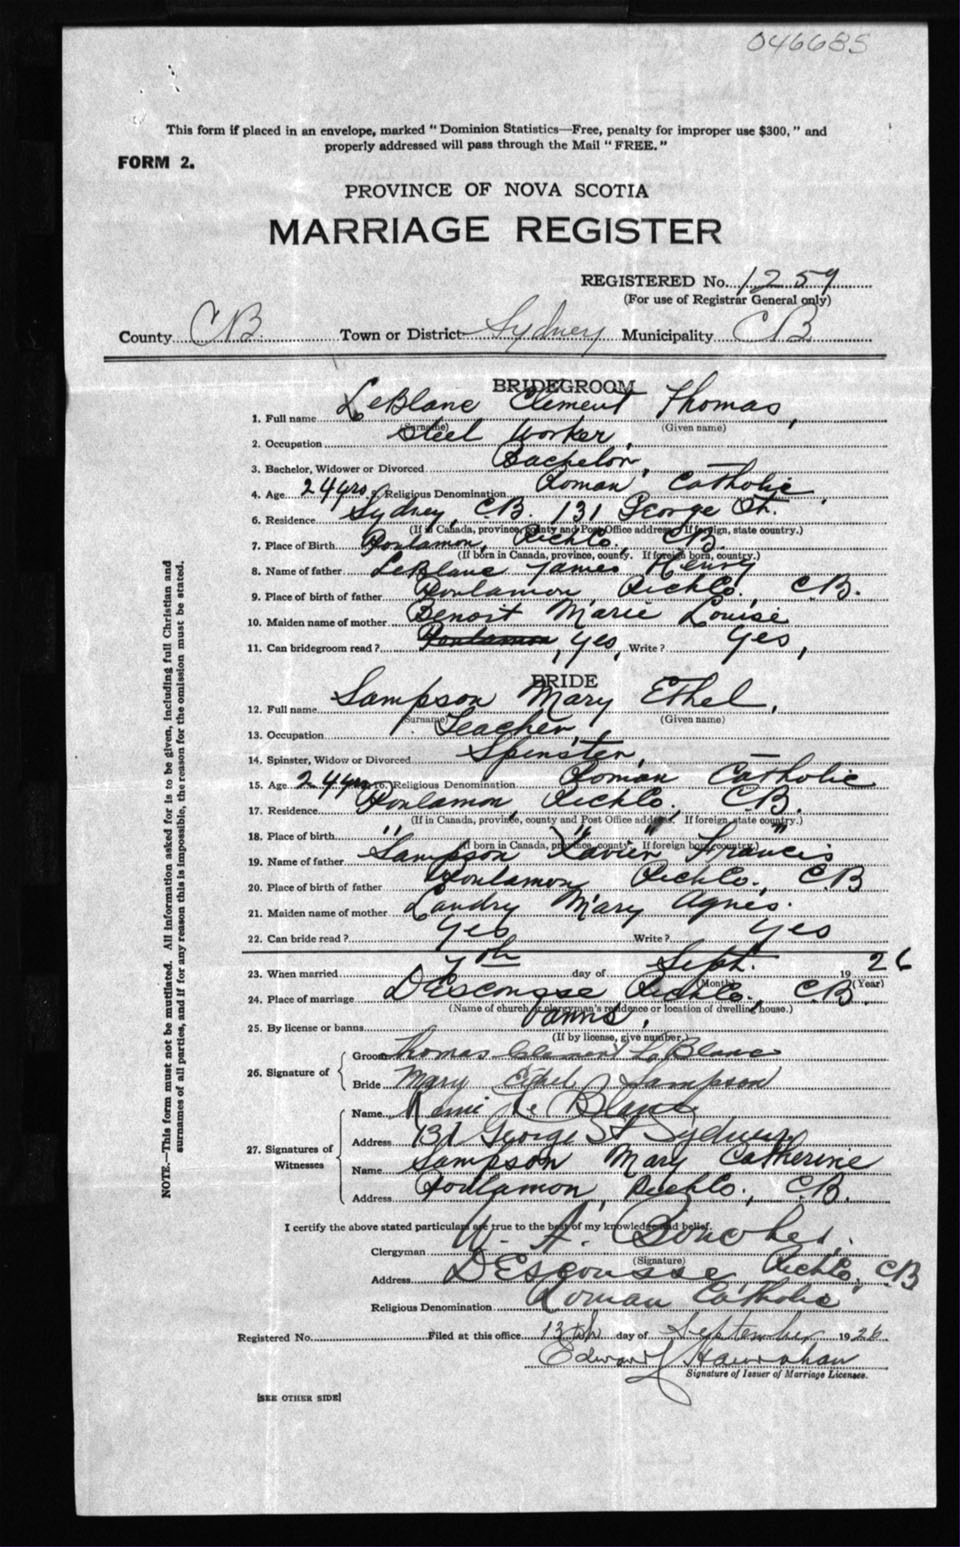 046685
This form if placed in an envelope, marked "Dominion Statistics—Free, penalty for improper use $300," and
properly addressed will pass through the Mail "FREE."
FORM 2.
PROVINCE OF NOVA SCOTIA
MARRIAGE REGISTER
REGISTERED No. 1259
(For use of Registrar General only)
County C B. Town or District Sydney Municipality C B
BRIDEGROOM
1. Full name LeBlanc Clement Thomas,
(Surname) (Given name)
2. Occupation Steel Worker,
3. Bachelor, Widower or Divorced Bachelor,
4. Age 24 yrs. 5. Religious Denomination Roman Catholic,
6. Residence Sydney, C.B. 131 George St.
(If in Canada, province, county and Post Office address. If foreign, state country.)
7. Place of Birth Poulamon, Rich Co. C B.
(If born in Canada, province, county. If foreign born, country.)
8. Name of father LeBlanc James Henry
9. Place of birth of father Poulamon Rich Co., C B.
10. Maiden name of mother Benoit Marie Louise
11. Can bridegroom read? Poulamon, Yes, Write? Yes,
BRIDE
12. Full name Sampson Mary Ethel,
(Surname) (Given name)
13. Occupation Teacher,
14. Spinster, Widow or Divorced Spinster,
15. Age 24 yrs 16. Religious Denomination Roman Catholic
17. Residence Poulamon, Rich Co. C B.
(If in Canada, province, county and Post Office address. If foreign, state country.)
18. Place of birth " " " "
(If born in Canada, province, county. If foreign born, country.)
19. Name of father Sampson Xavier Francis
20. Place of birth of father Poulamon Rich Co., C.B
21. Maiden name of mother Landry Mary Agnes.
22. Can bride read? Yes Write? Yes
23. When married 7th day of Sept. 19 26
(Month) (Year)
24. Place of marriage D'Escousse Rich Co., C B.
(Name of church or clergyman's residence or location of dwelling house.)
25. By license or banns Banns,
(If by license, give number.)
26. Signature of Groom Thomas Clement LeBlanc
Bride Mary Ethel Sampson
27. Signatures of Witnesses
Name Remi Le Blanc
Address 131 George St Sydney
Name Sampson Mary Catherine
Address Poulamon, Rich Co., C.B.
I certify the above stated particulars are true to the best of my knowledge and belief.
Clergyman W. A.
(Signature)
Address D'Escousse Rich Co. C B
Religious Denomination Roman Catholic
Registered No. Filed at this office 13th day of September 1926
Edward Hanrahan
Signature of Issuer of Marriage Licenses.
[SEE OTHER SIDE]
NOTE.—This form must not be mutilated. All information asked for is to be given, including full Christian and
surnames of all parties, and if for any reason this is impossible, the reason for the omission must be stated.